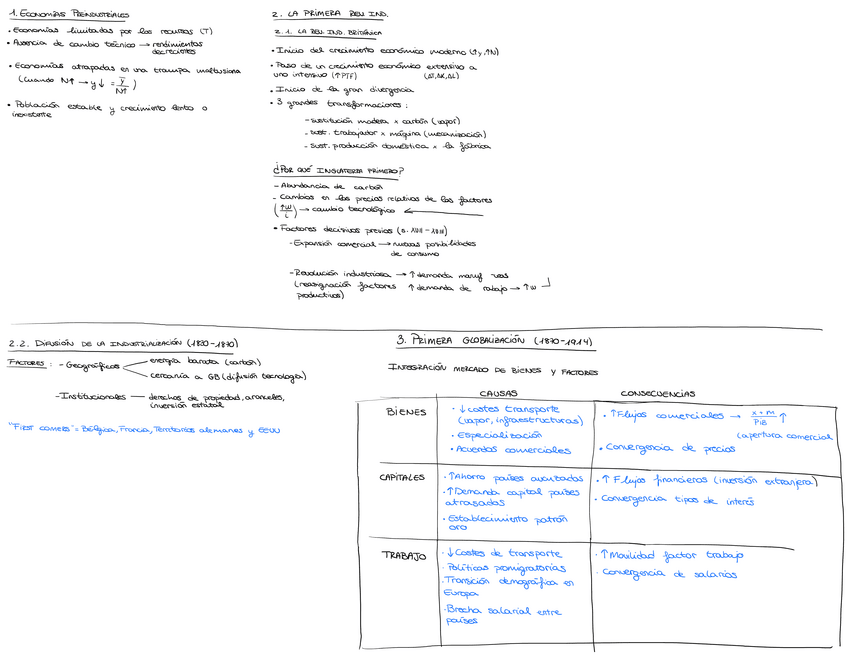 1. ECONOMÍAS PREINDUSTRIALES
• Economías limitadas por los recursos (T)
• Ausencia de cambio técnico → rendimientos
decrecientes
• Economías atrapadas en una trampa maltusiana
(cuando N↑ → y↓ = Y/N↑)
• Población estable y crecimiento lento o
inexistente
2. LA PRIMERA REV. IND.
2.1. LA REV. IND. BRITÁNICA
• Inicio del crecimiento económico moderno (↑y, ↑N)
• Paso de un crecimiento económico extensivo a
uno intensivo (↑PTF) (ΔT, ΔK, ΔL)
• Inicio de la gran divergencia
• 3 grandes transformaciones:
- sustitución madera x carbón (vapor)
- sust. trabajador x máquina (mecanización)
- sust. producción doméstica x la fábrica
¿POR QUÉ INGLATERRA PRIMERO?
- Abundancia de carbón
- Cambios en los precios relativos de los factores
(↑w/i) → cambio tecnológico ←
• Factores decisivos previos (s. XVII - XVIII)
- Expansión comercial → nuevas posibilidades
de consumo
- Revolución industriosa → ↑ demanda manuf
(reasignación factores ↑ demanda de trabajo → ↑w
productivos)
2.2. DIFUSIÓN DE LA INDUSTRIALIZACIÓN (1820-1870)
FACTORES: - Geográficos energía barata (carbón)
cercanía a GB (difusión tecnología)
- Institucionales — derechos de propiedad, aranceles,
inversión estatal
"FIRST COMERS" = Bélgica, Francia, Territorios alemanes y EEUU
3. PRIMERA GLOBALIZACIÓN (1870-1914)
INTEGRACIÓN MERCADO DE BIENES Y FACTORES
CAUSAS CONSECUENCIAS
BIENES
• ↓ costes transporte
(vapor, infraestructuras)
• Especialización
• Acuerdos comerciales
• ↑ Flujos comerciales → X+M/PIB ↑
(apertura comercial
• Convergencia de precios
CAPITALES
• ↑ Ahorro países avanzados
• ↑ Demanda capital países
atrasados
• Establecimiento patrón
oro
• ↑ Flujos financieros (inversión extranjera)
• Convergencia tipos de interés
TRABAJO
• ↓ Costes de transporte
• Políticas promigratorias
• Transición demográfica en
Europa
• Brecha salarial entre
países
• ↑ Movilidad factor trabajo
• Convergencia de salarios